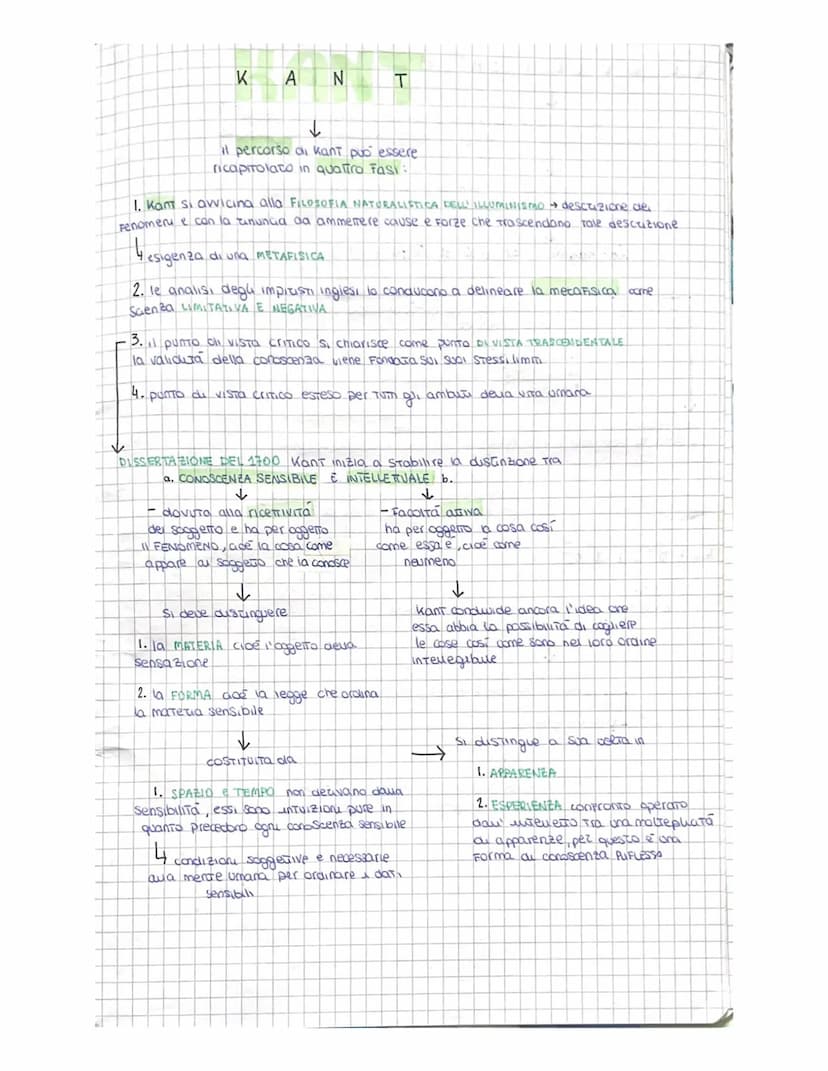 K A N T
il percorso di Kant può essere
ricapitolato in quattro fasi:
1. Kant si avvicina alla FILOSOFIA NATURALISTICA DELL'ILLUMINISMO → descrizione dei
fenomeni e con la rinuncia ad ammettere cause e forze che trascendono tale descrizione
esigenza di una METAFISICA
2. le analisi degli empiristi inglesi lo conducono a delineare la metafisica come
scienza LIMITATIVA E NEGATIVA
3. il punto di vista critico si chiarisce come punto DI VISTA TRASCENDENTALE
la validità della conoscenza viene fondata sui suoi stessi limiti
4. punto di vista critico esteso per tutti gli ambiti della vita umana
DISSERTAZIONE DEL 1700 Kant inizia a stabilire la distinzione tra
a. CONOSCENZA SENSIBILE E INTELLETTUALE b.
- dovuta alla ricettività
del soggetto e ha per oggetto
il FENOMENO, cioè la cosa come
appare al soggetto che la conosce
- Facoltà attiva
ha per oggetto la cosa così
come essa è, cioè come
noumeno
Si deve distinguere
1. la MATERIA cioè l'oggetto della
sensazione
2. la FORMA cioè la legge che ordina
la materia sensibile
Kant condivide ancora l'idea che
essa abbia la possibilità di cogliere
le cose così come sono nel loro ordine
intellegibile
COSTITUITA da
1. SPAZIO E TEMPO non derivano dalla
sensibilità, essi sono intuizioni pure in
quanto precedono ogni conoscenza sensibile
condizioni soggettive e necessarie
alla mente umana per ordinare i dati
sensibili
→ Si distingue a sua volta in
1. APPARENZA
2. ESPERIENZA confronto operato
dall'intelletto tra una molteplicità
di apparenze, per questo è una
forma di conoscenza RIFLESSA